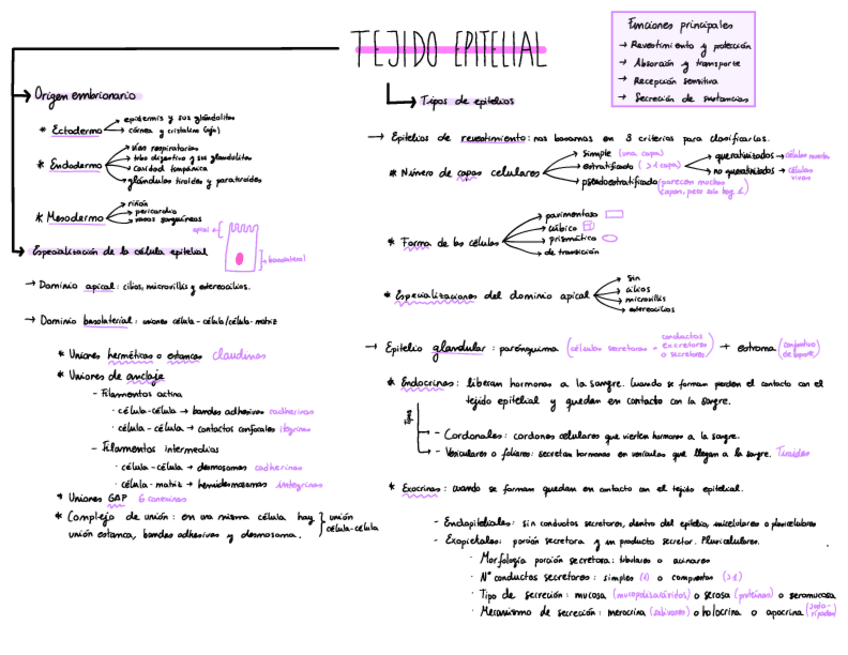 TEJIDO EPITELIAL
Funciones principales
→ Revestimiento y protección
→ Absorción y transporte
→ Recepción sensitiva
→ Secreción de sustancias
→ Origen embrionario
* Ectodermo
epidermis y sus glándulas
córnea y cristalino (ojo)
* Endodermo
vías respiratorias
tubo digestivo y sus glándulas
cavidad timpánica
glándulas tiroides y paratiroides
* Mesodermo
riñón
pericardio
vasos sanguíneos
→ Especialización de la célula epitelial
apical
basolateral
→ Dominio apical: cilios, microvillis y estereocilios.
→ Dominio basolaterial: uniones célula-célula/célula-matriz
* Uniones herméticas o estancas claudinas
* Uniones de anclaje
- Filamentos actina
· célula-célula → bandas adhesivas cadherinas
· célula-célula → contactos confocales itegrinas
- Filamentos intermedios
· célula-célula → desmosomas cadherinas
· célula-matriz → hemidesmosomas integrinas
* Uniones GAP 6 conexinas
* Complejo de unión: en una misma célula hay
unión estanca, bandas adhesivas y desmosoma.
unión
célula-célula
→ Tipos de epitelios
→ Epitelios de revestimiento: nos basamos en 3 criterios para clasificarlos.
* Número de capas celulares
simple (una capa)
estratificado (>1 capa)
queratinizados → células muertas
no queratinizados → células vivas
pseudoestratificado (parecen muchas
capas, pero solo hay 1)
* Forma de las células
pavimentoso
cúbico
prismático
de transición
* Especializaciones del dominio apical
sin
cilios
microvillis
estereocilios
→ Epitelio glandular: parénquima (células secretoras + conductos excretores o secretores) + estroma (conjuntivo de soporte)
* Endocrinas: liberan hormonas a la sangre. Cuando se forman pierden el contacto con el
tejido epitelial y quedan en contacto con la sangre.
Tipos
- Cordonales: cordones celulares que vierten hormonas a la sangre.
- Vesiculares o foliares: secretan hormonas en vesículas que llegan a la sangre. Tiroides
* Exocrinas: cuando se forman quedan en contacto con el tejido epitelial.
- Endoepiteliales: sin conductos secretores, dentro del epitelio, unicelulares o pluricelulares
- Exoepiteliales: porción secretora y un producto secretor. Pluricelulares.
· Morfología porción secretora: tubulares o acinares
· Nº conductos secretores: simples (1) o compuestas (>1)
· Tipo de secreción: mucosa (mucopolisacáridos) o serosa (proteínas) o seromucosa
· Mecanismo de secreción: merocrina (salivares) o holocrina o apocrina